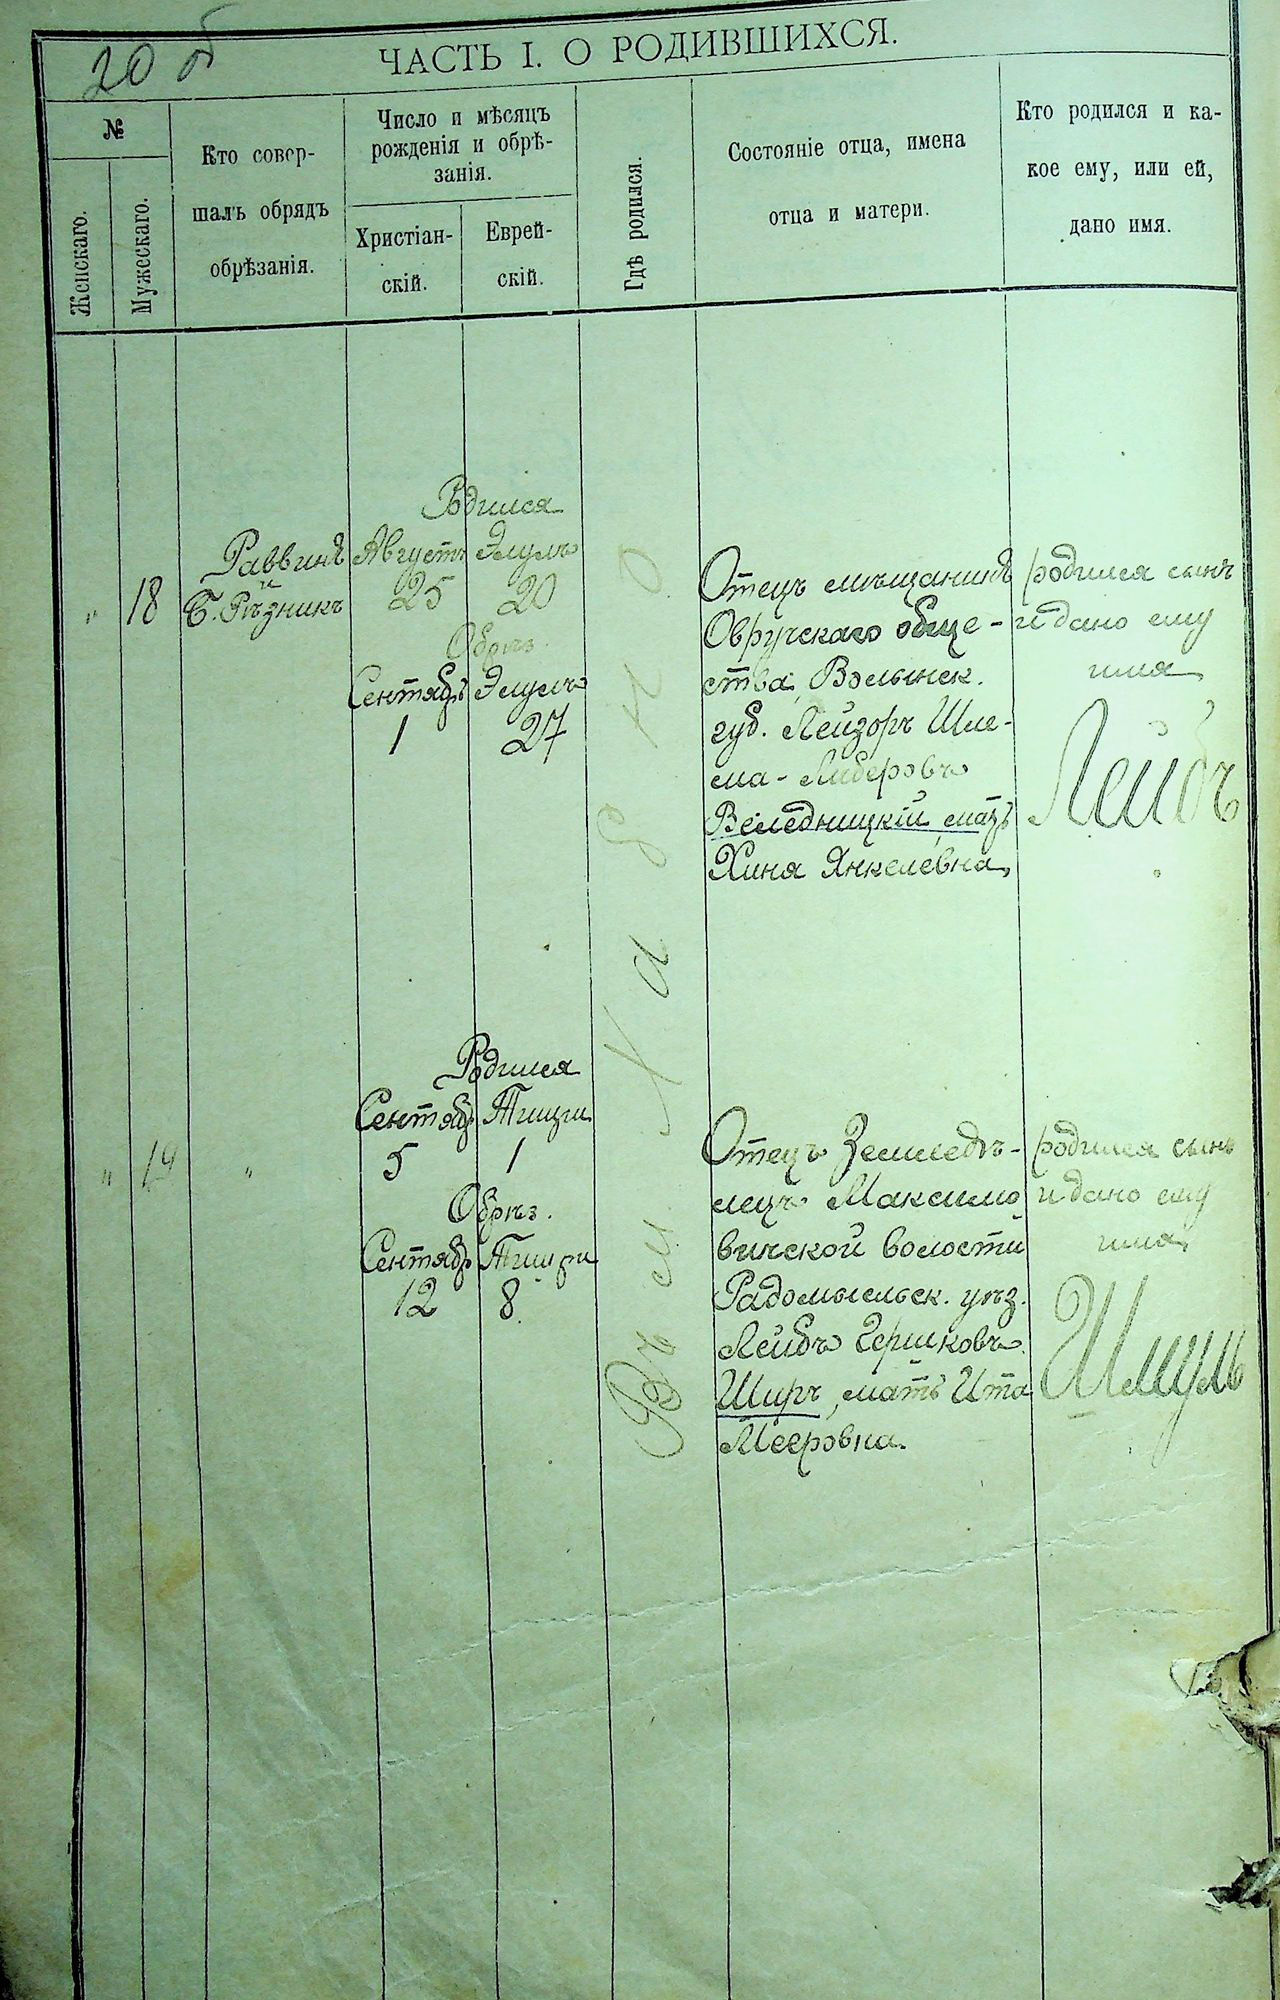 20 об
ЧАСТЬ I. О РОДИВШИХСЯ.
№
Женскаго.
Мужескаго.
Кто совер-
шалъ обрядъ
обрѣзанія.
Число и мѣсяцъ
рожденія и обрѣ-
занія.
Христіан-
скій.
Еврей-
скій.
Гдѣ родился.
Состояніе отца, имена
отца и матери.
Кто родился и ка-
кое ему, или ей,
дано имя.
Въ м. Хабно
" 18
Раввинъ
и
Б. Рѣзникъ
Родился
Августъ Элулъ
25 20
Обрѣз.
Сентябрь Элулъ
1 27
Отецъ мѣщанинъ
Овручскаго обще-
ства, Волынск.
губ. Лейзоръ Шле-
ма-Либеровъ
Веледницкій, мать
Хиня Янкелевна
родился сынъ
и дано ему
имя
Лейбъ
" 19 "
Родился
Сентябр Тишри
5 1
Обрѣз.
Сентябр Тишри
12 8.
Отецъ Земледѣ-
лецъ Максимо
вичской волости
Радомысльск. уѣз.
Лейбъ Гершковъ
Ширъ, мать Ита
Мееровна.
родился сынъ
и дано ему
имя
Шмуль